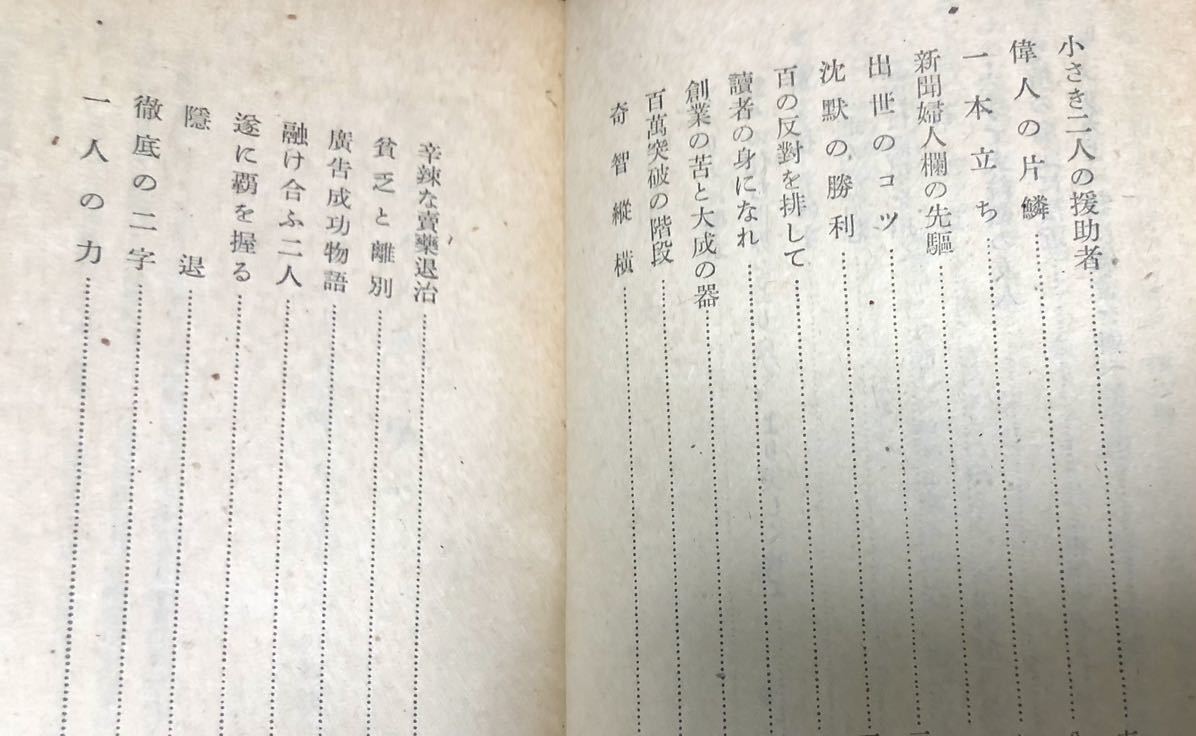 小さき二人の援助者
偉人の片鱗
一本立ち
新聞婦人欄の先驅
出世のコツ
沈默の勝利
百の反對を排して
讀者の身になれ
創業の苦と大成の器
百萬突破の階段
奇智縱橫
辛辣な賣藥退治
貧乏と離別
廣吿成功物語
融け合ふ二人
遂に覇を握る
隱退
徹底の二字
一人の力